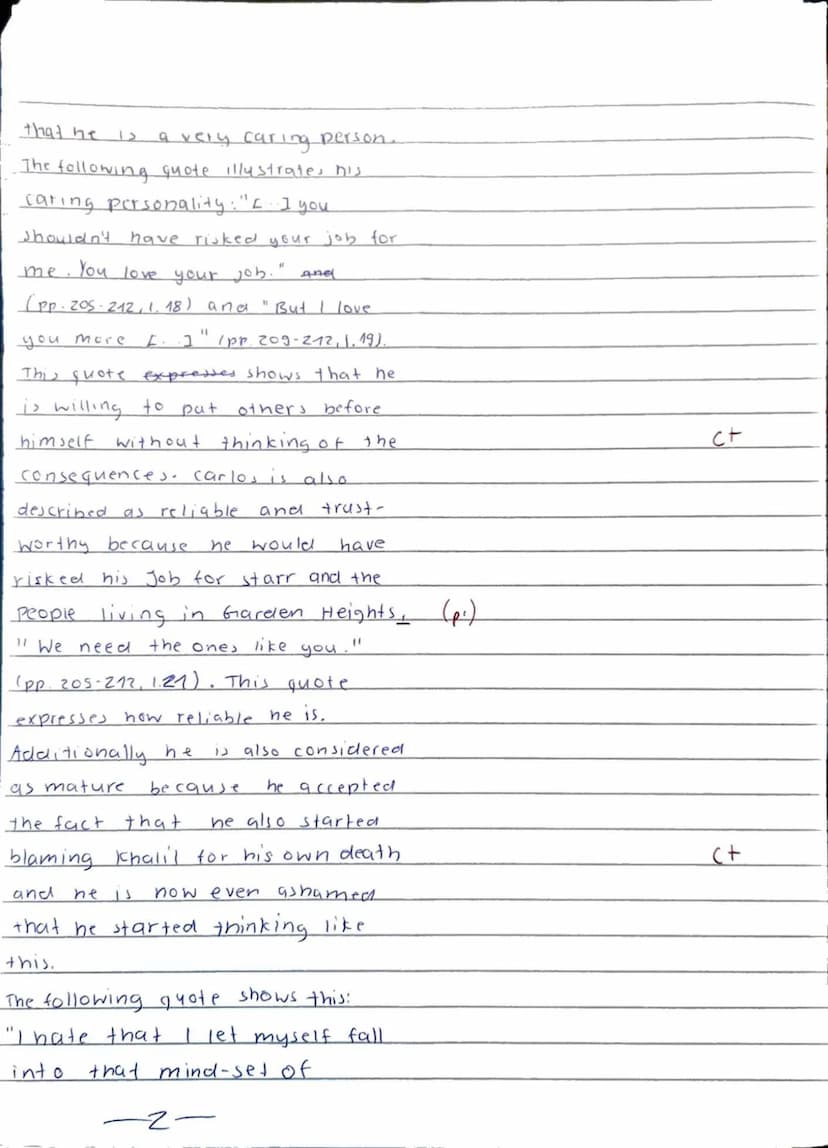 that he is a very caring person.
The following quote illustrates his
caring personality: "[..] you
shouldn't have risked your job for
me. You love your job." and
(pp. 205-212, l. 18) and "But I love
you more [..]" (pp. 209-212, l. 19).
This quote expresses shows that he
is willing to put others before
himself without thinking of the ct
consequences. Carlos is also
described as reliable and trust-
worthy because he would have
risked his job for starr and the
people living in Garden Heights. (p.)
"We need the ones like you."
(pp. 205-212, l.21). This quote
expresses how reliable he is.
Additionally he is also considered
as mature because he accepted
the fact that he also started
blaming Khalil for his own death ct
and he is now even ashamed
that he started thinking like
this.
The following quote shows this:
"I hate that I let myself fall
into that mind-set of
—2—